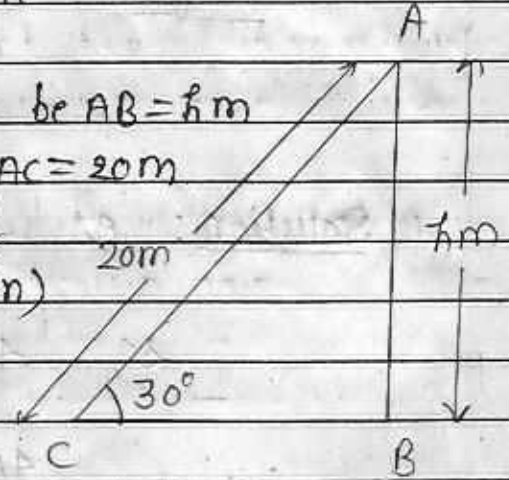 A
be AB = hm
AC = 20m
hm
20m
n)
30°
C
B